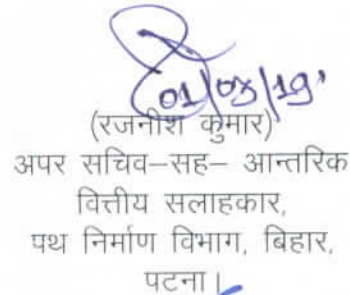 01/03/19
(रजनीश कुमार)
अपर सचिव–सह– आन्तरिक
वित्तीय सलाहकार,
पथ निर्माण विभाग, बिहार,
पटना।